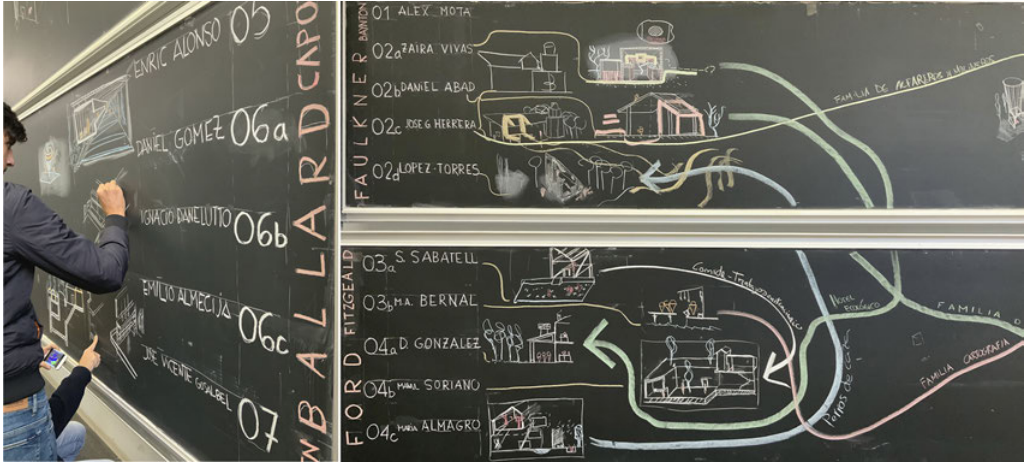 ENRIC ALONSO 05
DANIEL GOMEZ 06a
IGNACIO DANELUTTO 06b
EMILIO ALMECIJA 06c
JOSE VICENTE GISALBEL 07
CAPO
BALLARD
WB
BAYNTON
FAULKNER
01 ALEX MOTA
02a ZAIRA VIVAS
02b DANIEL ABAD
02c JOSE G HERRERA
02d LOPEZ-TORRES
FAMILIA DE
FITZGEALD
FORD
03a S. SABATELL
03b M.A. BERNAL
04a D. GONZALEZ
04b SORIANO
04c MARIA ALMAGRO
Comida-Trabajo
HOTEL
ECOLÓGICO
FAMILIA D
FAMILIA CARTOGRAFIA
Perros de caza